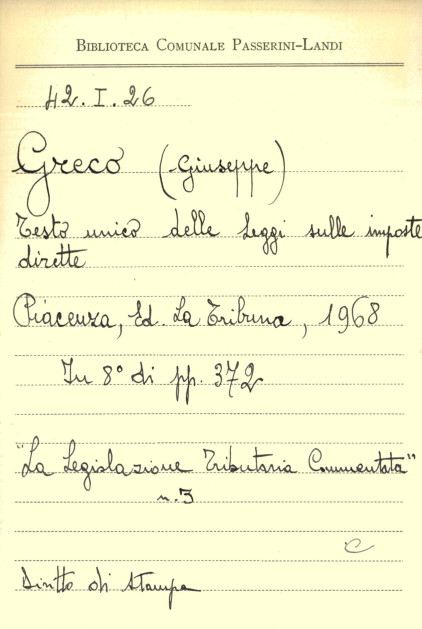 BIBLIOTECA COMUNALE PASSERINI-LANDI
42.I.26
Greco (Giuseppe)
Testo unico delle leggi sulle imposte
dirette
Piacenza, Ed. La Tribuna, 1968
In 8° di pp. 372
"La Legislazione Tributaria Commentata"
n. 3
c
Diritto di Stampa